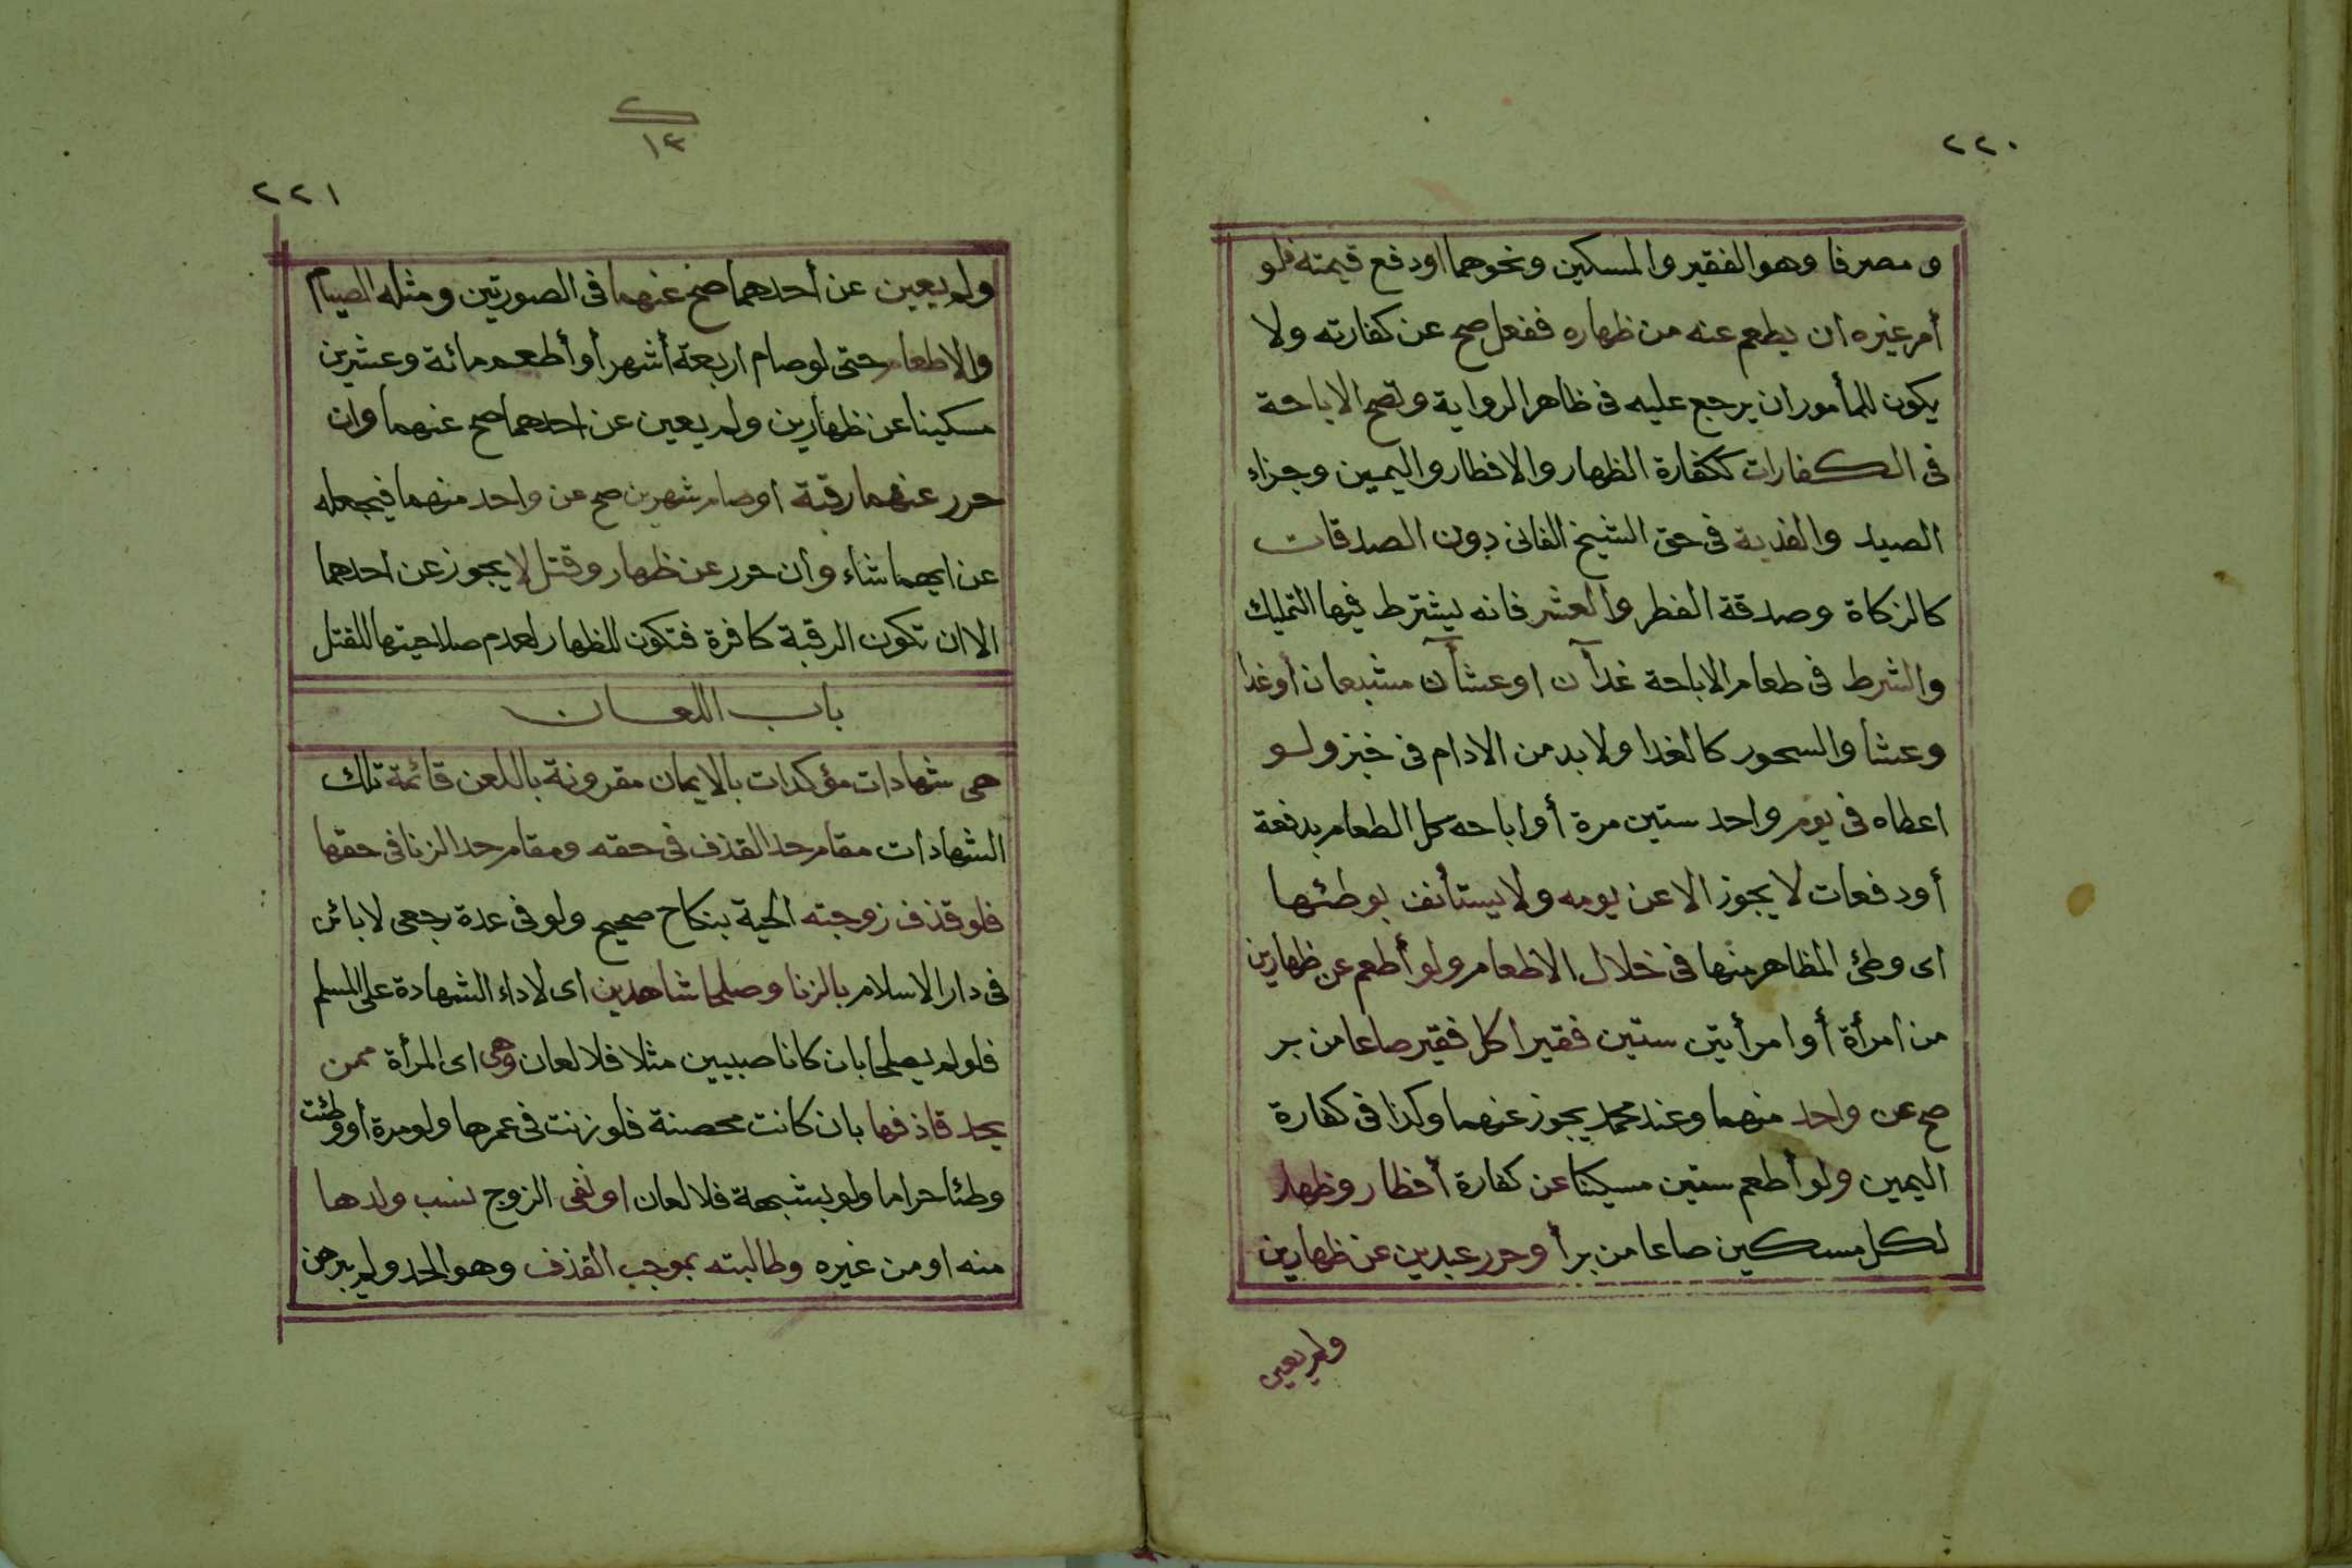 ٢٢٠
و مصرفا وهو الفقير والمسكين ونحوهما اودفع قيمته فلو
أمر غيره ان يطعم عنه من ظهاره ففعل صح عن كفارته ولا
يكون للمأمور ان يرجع عليه فى ظاهر الرواية وتصح الاباحة
فى الكفارات ككفارة الظهار والافطار واليمين وجزاء
الصيد والفدية فى حق الشيخ الفانى دون الصدقات
كالزكاة وصدقة الفطر والعشر فانه يشترط فيها التمليك
والشرط فى طعام الاباحة غدآن اوعشآن مشبعان أوغدا
وعشا والسحور كالغدا ولابد من الادام فى خبز ولو
اعطاه فى يوم واحد ستين مرة أو اباحه كل الطعام بدفعة
أودفعات لايجوز الا عن يومه ولايستأنف بوطئها
اى وطئ المظاهر منها فى خلال الاطعام ولو أطعم عن ظهارين
من امرأة أو امرأتين ستين فقيرا كل فقير صاعا من بر
صح عن واحد منهما وعند محمد يجوز عنهما وكذا فى كفارة
اليمين ولو أطعم ستين مسكينا عن كفارة أفطار وظهار
لكل مسكين صاعا من بر أو حرر عبدين عن ظهارين
ولم يعين
١٣
٢٢١
ولم يعين عن أحدهما صح عنهما فى الصورتين ومثله الصيام
والاطعام حتى لوصام اربعة أشهر أو أطعم مائة وعشرين
مسكينا عن ظهارين ولم يعين عن احدهما صح عنهما وان
حرر عنهما رقبة اوصام شهرين صح عن واحد منهما فيجعله
عن ايهما شاء وأن حرر عن ظهار وقتل لايجوز عن احدهما
الا ان تكون الرقبة كافرة فتكون للظهار لعدم صلاحيتها للقتل
باب اللعان
هى شهادات مؤكدات بالايمان مقرونة باللعن قائمة تلك
الشهادات مقام حد القذف فى حقه ومقام حد الزنا فى حقها
فلو قذف زوجته الحية بنكاح صحيح ولو فى عدة رجعى لا بائن
فى دار الاسلام بالزنا وصلحا شاهدين اى لاداء الشهادة على المسلم
فلولم يصلحا بان كانا صبيين مثلا فلا لعان وهى اى المرأة ممن
يحد قاذفها بان كانت محصنة فلو زنت فى عمرها ولومرة أووطئت
وطئا حراما ولو بشبهة فلا لعان او نفى الزوج نسب ولدها
منه او من غيره وطالبته بموجب القذف وهو الحد ولم يبرهن